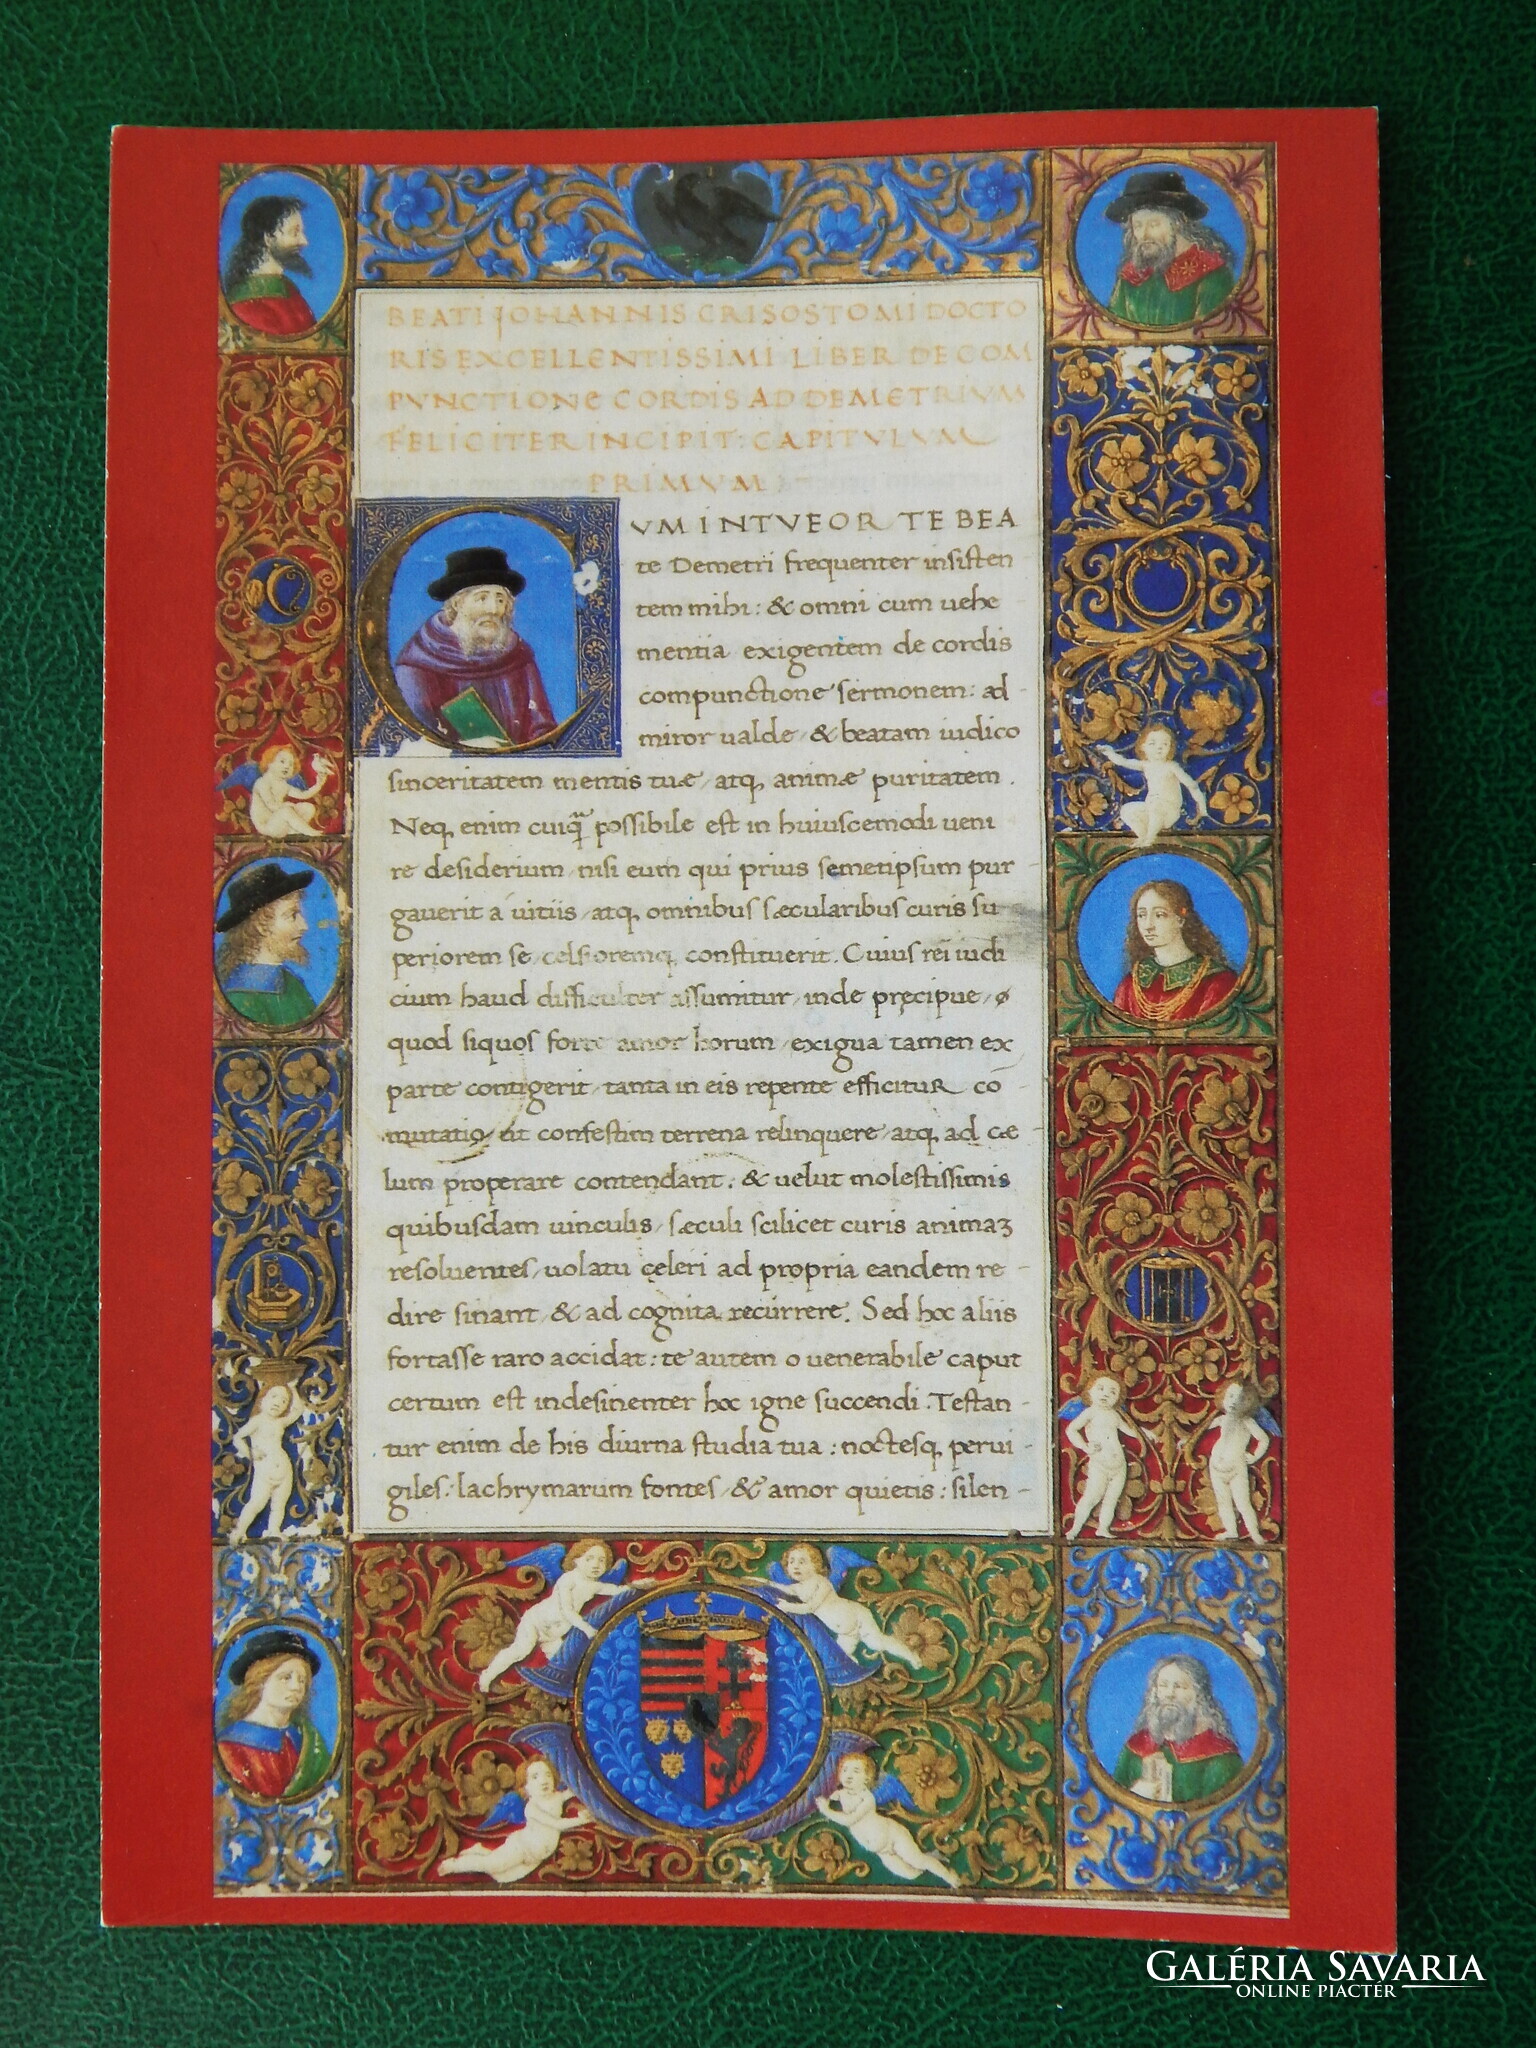 BEATI JOHANNIS CRISOSTOMI DOCTO
RIS EXCELLENTISSIMI LIBER DE COM
PVNCTIONE CORDIS AD DEMETRIVM
FELICITER INCIPIT: CAPITVLVM
PRIMVM
CVM INTVEOR TE BEA
te Demetri frequenter insisten
tem mihi: & omni cum uehe
mentia exigentem de cordis
compunctione sermonem: ad-
miror ualde, & beatam iudico
sinceritatem mentis tuæ, atq, animæ puritatem.
Neq, enim cuiq̃ possibile est in huiuscemodi ueni
re desiderium, nisi eum qui prius semetipsum pur-
gauerit á uitiis, atq, omnibus sæcularibus curis su-
periorem se, celsioremq, constituerit. Cuius rei iudi
cium haud difficulter assumitur, inde pręcipue, ø
quod siquos forte amor horum, exigua tamen ex
parte contigerit, tanta in eis repente efficituR cō-
mutatio, ut confestim terrena relinquere, atq, ad cæ
lum properare contendant: & uelut molestissimis
quibusdam uinculis, sæculi scilicet curis animaʒ
resoluentes, uolatu celeri ad propria eandem re-
dire sinant, & ad cognita recurrere. Sed hoc aliis
fortasse raro accidat: te autem o uenerabile caput
certum est indesinenter hoc igne succendi. Testan-
tur enim de his diurna studia tua: noctesq, perui-
giles: lachrymarum fontes, & amor quietis: silen-
GALÉRIA SAVARIA
ONLINE PIACTÉR